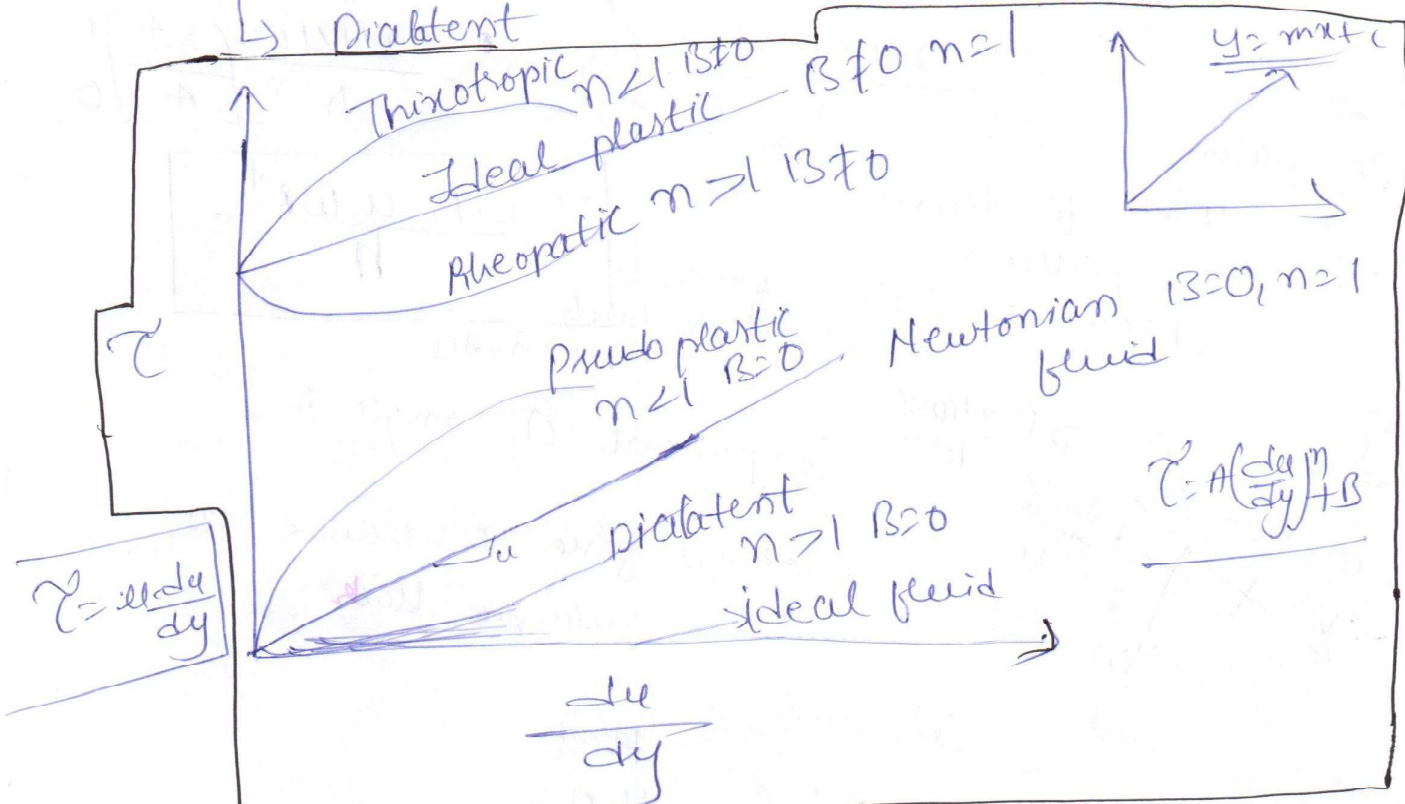 ↳ Dialatent
Thixotropic n<1 B≠0
Ideal plastic B≠0 n=1
Rheopatic n>1 B≠0
y=mx+c
τ
Pseudoplastic
n<1 B=0
Newtonian B=0, n=1
fluid
τ=A(du/dy)^n+B
u
Dialatent
n>1 B=0
ideal fluid
τ=μ du/dy
du
dy